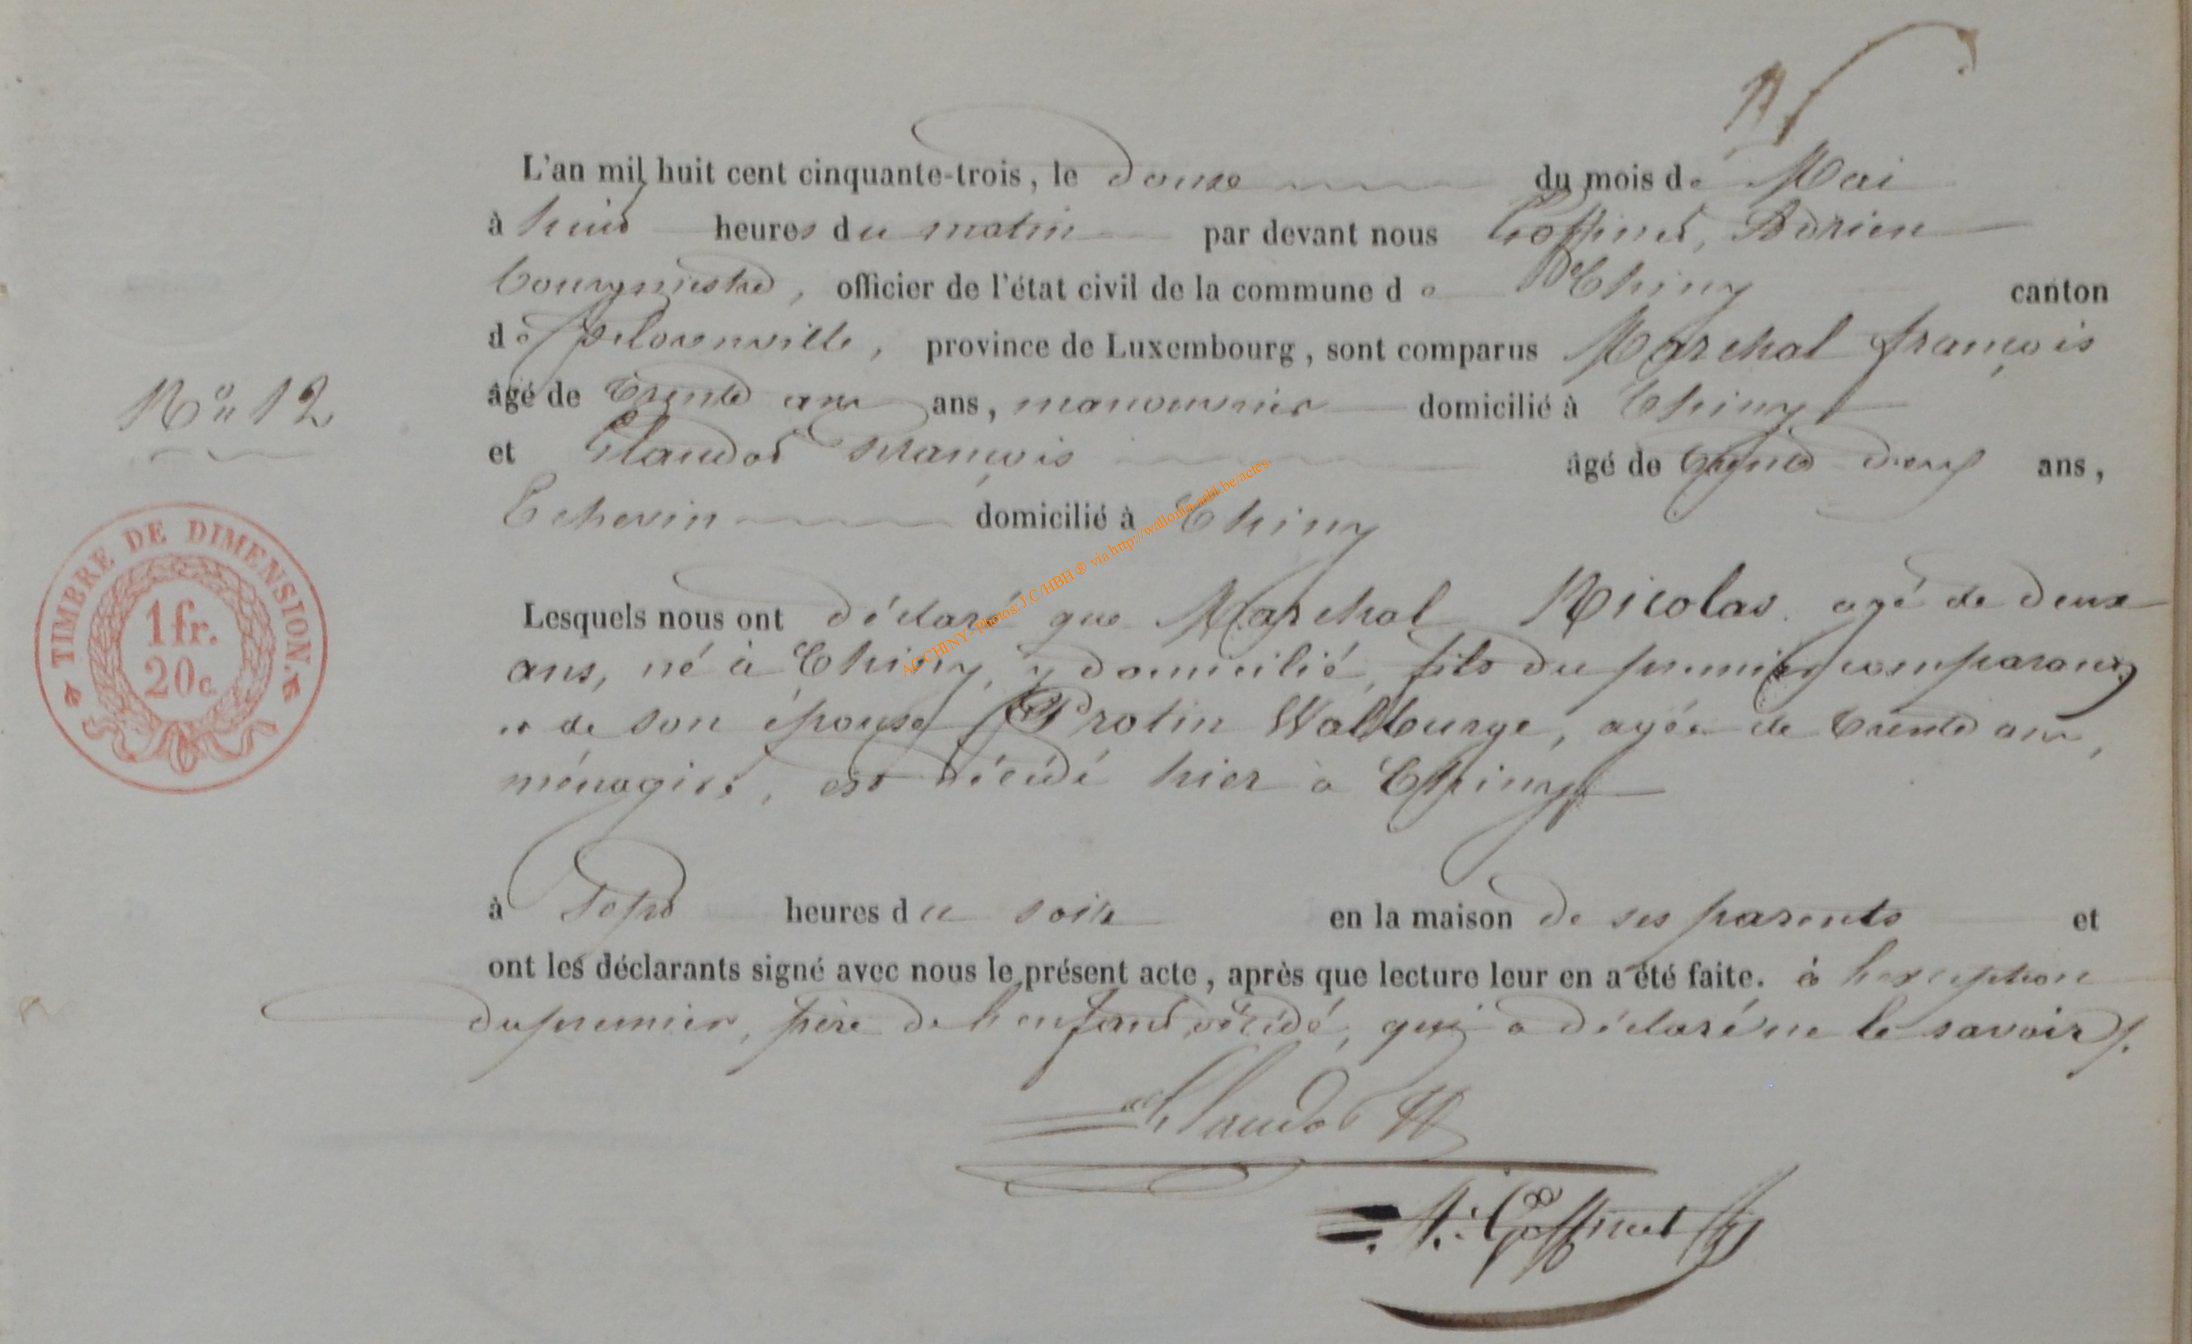 L'an mil huit cent cinquante-trois, le douze du mois de Mai
à huit heures du matin par devant nous Goffinet, Adrien
bourgmestre, officier de l'état civil de la commune de Chiny canton
de florenville, province de Luxembourg, sont comparus Marchal françois
âgé de trente ans ans, manouvrier domicilié à Chiny
N° 12
et Claudot François âgé de trente deux ans,
Echevin domicilié à Chiny
TIMBRE DE DIMENSION.
1 fr.
20 c.
ACCHINY- Photos J.C/HBH ® via http://wallonia-asbl.be/actes
Lesquels nous ont déclaré que Marchal Nicolas agé de deux
ans, né à Chiny, y domicilié, fils du premier comparant
et de son épouse Protin Walburge, agée de trente ans,
ménagère, est décédé hier à Chiny
à Sept heures du soir en la maison de ses parents et
ont les déclarants signé avec nous le présent acte, après que lecture leur en a été faite. à l'exception
du premier, père de l'enfant décédé, qui a déclaré ne le savoir.
Claudot
A. Goffinet